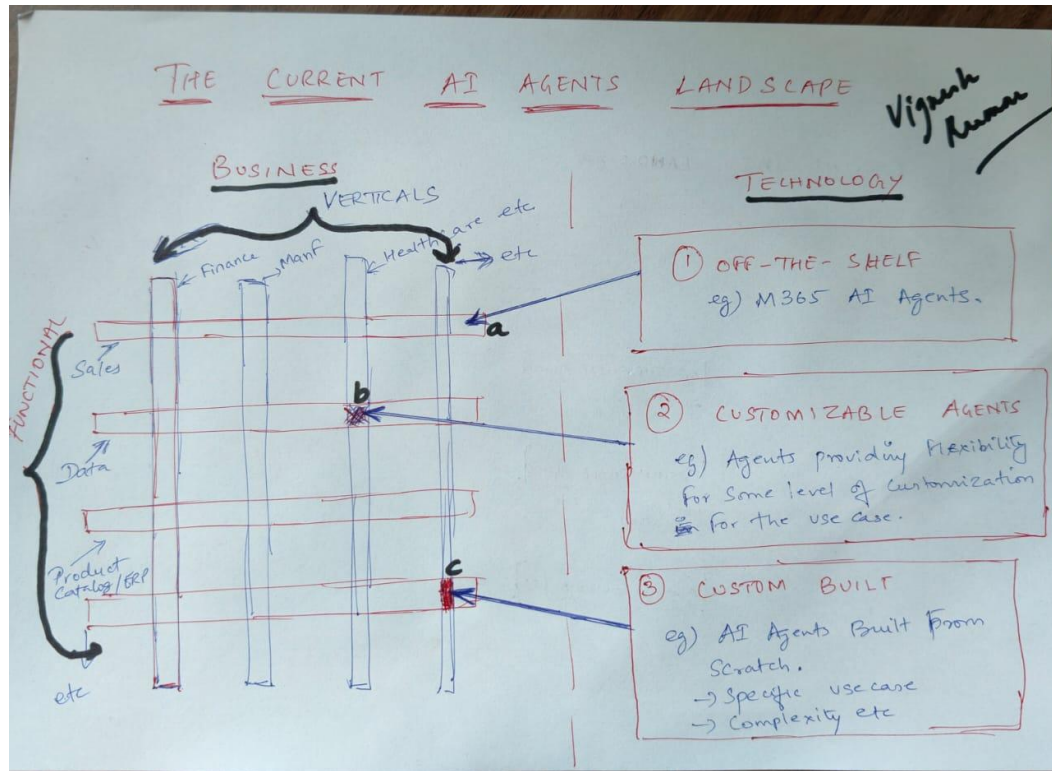 THE CURRENT AI AGENTS LANDSCAPE
Vignesh
Kumar
BUSINESS
VERTICALS
Finance
Manf
Healthcare etc
etc
FUNCTIONAL
Sales
a
b
Data
Product
Catalog/ERP
c
etc
TECHNOLOGY
1 OFF-THE-SHELF
eg) M365 AI Agents.
2 CUSTOMIZABLE AGENTS
eg) Agents providing Flexibility
for some level of customization
for the use case.
3 CUSTOM BUILT
eg) AI Agents Built From
Scratch.
→ Specific usecase
→ Complexity etc